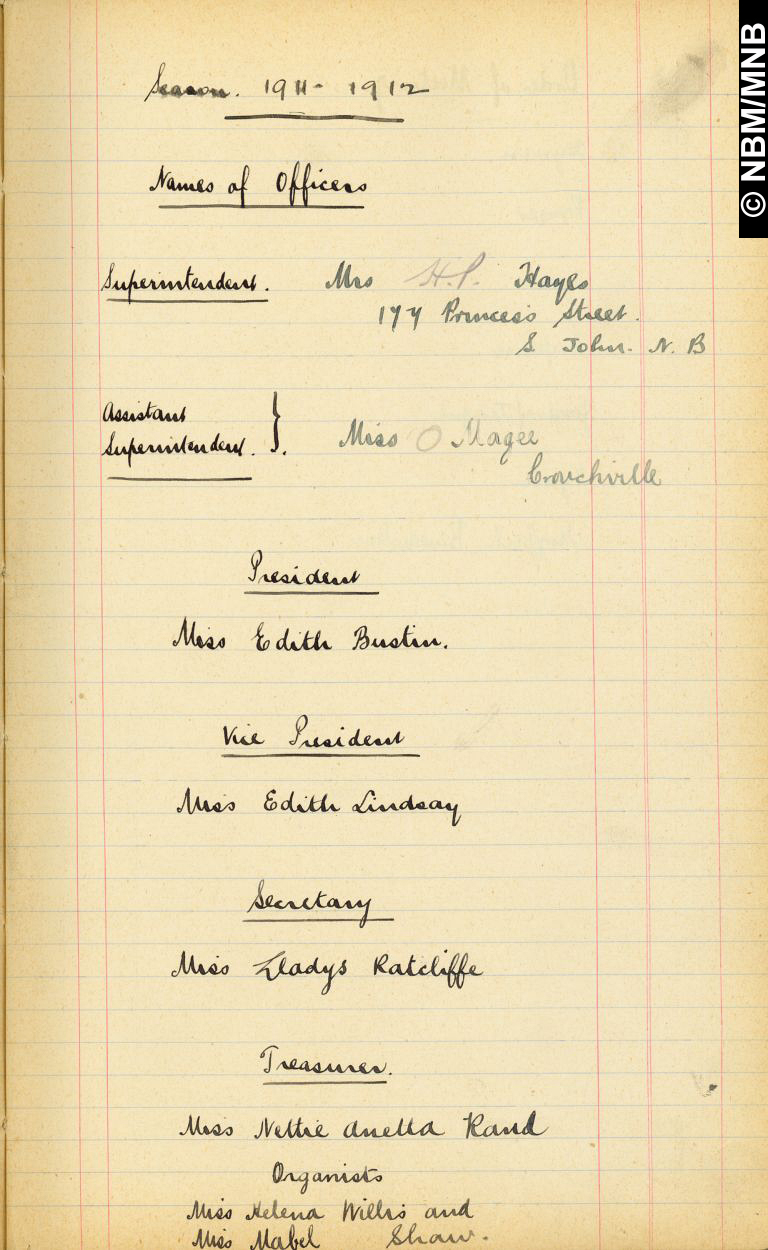 Season. 1911- 1912
Names of Officers
Superintendent. Mrs H.P. Hayes
177 Princess Street.
S John. N. B
Assistant
Superintendent. } Miss O Magee
Crouchville
President
Miss Edith Bustin.
Vice President
Miss Edith Lindsay
Secretary
Miss Gladys Ratcliffe
Treasurer.
Miss Nettie Anetta Rand
Organists
Miss Helena Willis and
Miss Mabel Shaw.
© NBM/MNB